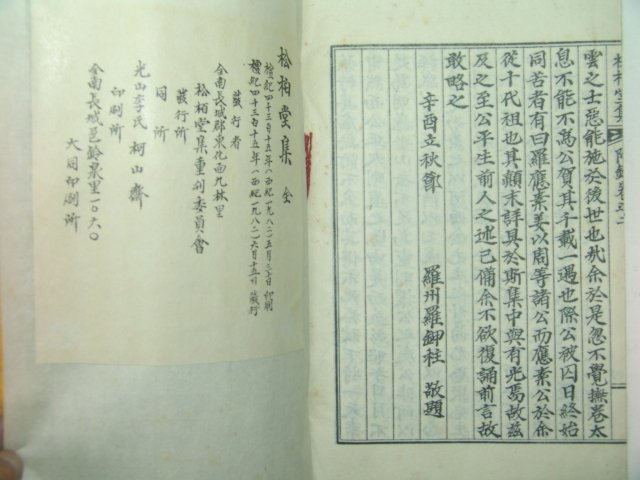 雲之士惡能施於後世也哉余於是忽不覺撫卷太
息不能不爲公賀其千載一遇也際公被囚日終始
同苦者有曰羅應素姜以周等諸公而應素公於余
從十代祖也其顚末詳具於斯集中與有光焉故玆
及之至公平生前人之述已備余不欲復誦前言故
敢略之
辛酉立秋節
羅州羅鉀柱 敬題
松栢堂集 全
檀紀四三一五年(西紀一九八二)五月三十日 印刷
檀紀四三一五年(西紀一九八二)六月十五日 發行
發行者
全南長城郡東化面九林里
松栢堂集重刊委員會
發行所
同所
光山李氏 柯山齋
印刷所
全南長城邑鈴泉里一〇六〇
大同印刷所